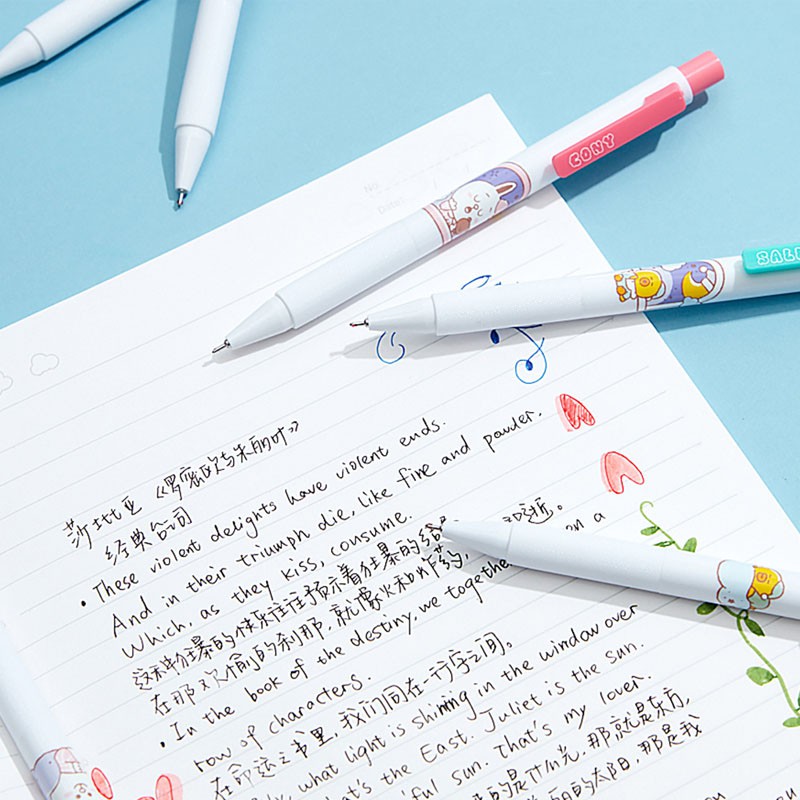 No
Date:
CONY
SALL
莎士比亚《罗密欧与朱丽叶》
经典台词
• These violent delights have violent ends.
And in their triumph die, like fire and powder,
Which, as they kiss, consume.
这种狂暴的快乐往往预示着狂暴的结 逝。
在那欢愉的刹那,就像火和炸药,
• In the book of the destiny, we together on a
row of characters.
在命运之书里,我们同在一行字之间。
what light is shining in the window over
the East. Juliet is the sun.
sun. That's my lover.
的是什么光,那就是东方,
的太阳,那是我